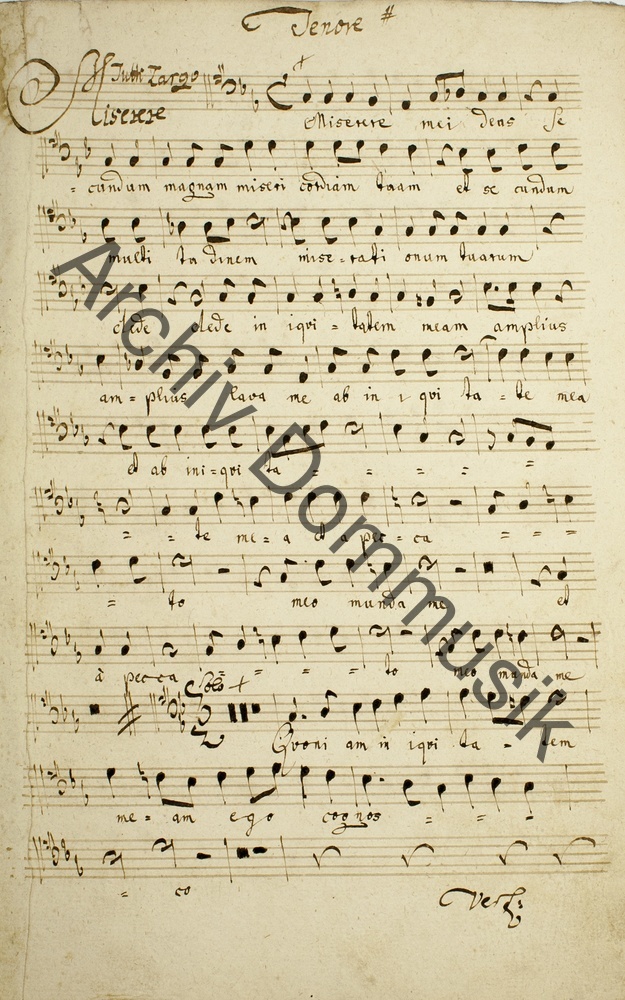 Tenore #
Tutti Largo
Miserere
Miserere mei deus se
= cundum magnam miseri cordiam tuam et se cundum
multi tu dinem mise = rati onum tuarum
dele dele in iqui = tatem meam amplius
am = plius lava me ab in i qui ta = te mea
et ab ini = qui ta = = = = =
= = te me = a et a pec = ca = = =
= to meo munda me et
à pecca = = = = to meo munda me
Solo +
Quoni am in iqui ta = tem
me = am ego cognos = = =
= co
Archiv Dommusik